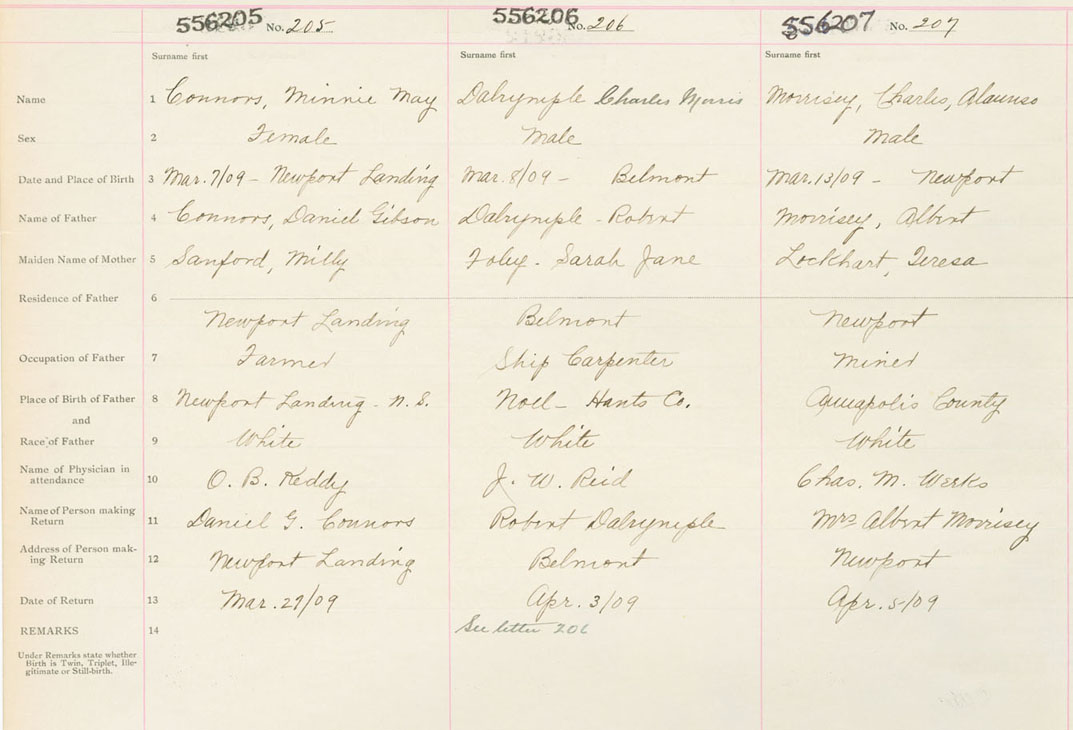 556205 No. 205 556206 No. 206 556207 No. 207
Surname first Surname first Surname first
Name 1 Connors, Minnie May Dalrymple Charles Morris Morrisey, Charles, Alaunso
Sex 2 Female Male Male
Date and Place of Birth 3 Mar. 7/09 - Newport Landing Mar. 8/09 - Belmont Mar. 13/09 - Newport
Name of Father 4 Connors, Daniel Gibson Dalrymple - Robert Morrisey, Albert
Maiden Name of Mother 5 Sanford, Milly Foley - Sarah Jane Lockhart, Teresa
Residence of Father 6
Newport Landing Belmont Newport
Occupation of Father 7 Farmer Ship Carpenter Miner
Place of Birth of Father 8 Newport Landing - N. S. Noel - Hants Co. Annapolis County
and
Race of Father 9 White White White
Name of Physician in
attendance 10 O. B. Keddy J. W. Reid Chas. M.
Name of Person making
Return 11 Daniel G. Connors Robert Dalrymple Mrs Albert Morrisey
Address of Person mak-
ing Return 12 Newport Landing Belmont Newport
Date of Return 13 Mar. 27/09 Apr. 3/09 Apr. 5/09
REMARKS 14 See letter 206
Under Remarks state whether
Birth is Twin, Triplet, Ille-
gitimate or Still-birth.